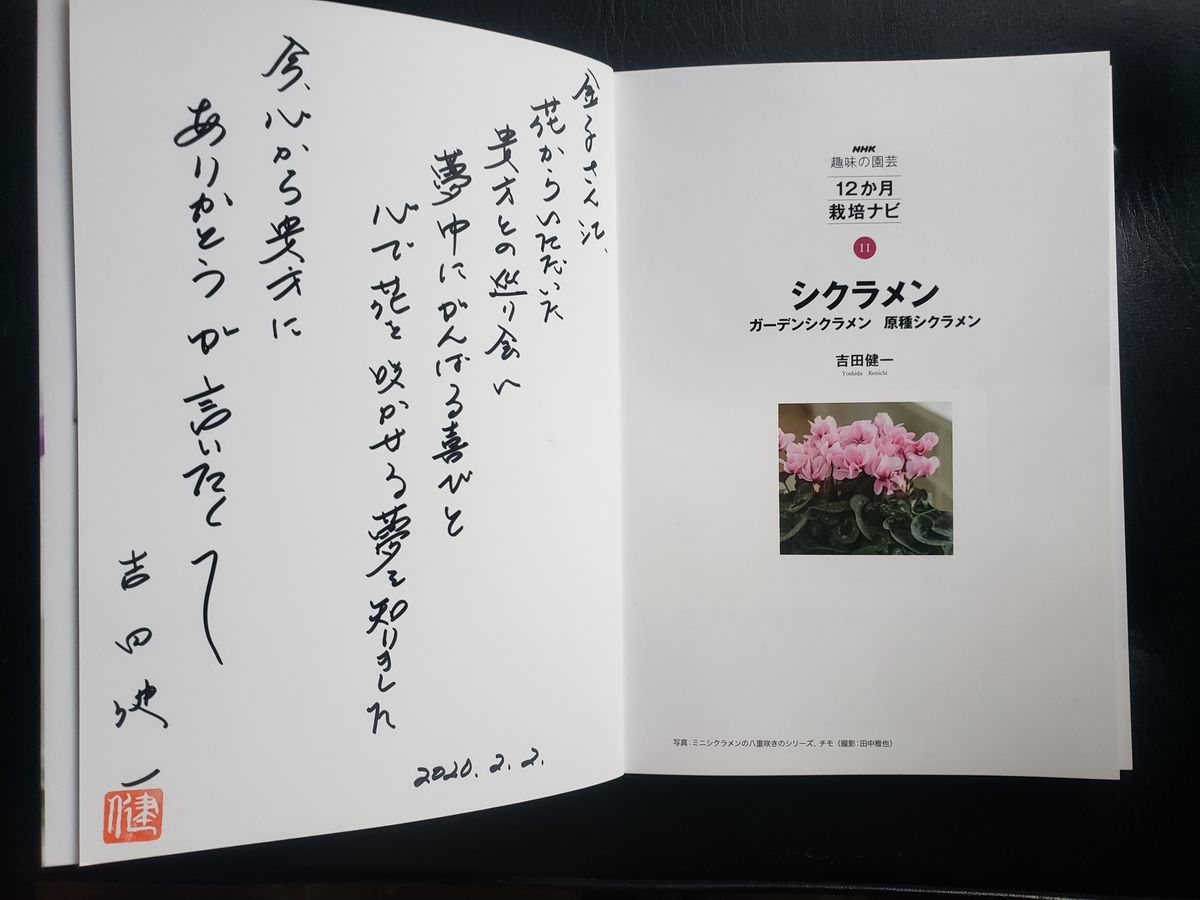 金子さん江、
花からいただいた
貴方との巡り会い
夢中にがんばる喜びと
心で花を咲かせる夢を知りました
今、心から貴方に
ありがとうが言いたくて
吉田健一
健
2020.2.2.
NHK
趣味の園芸
12か月
栽培ナビ
11
シクラメン
ガーデンシクラメン 原種シクラメン
吉田健一
Yoshida Kenichi
写真:ミニシクラメンの八重咲きのシリーズ、チモ(撮影:田中雅也)